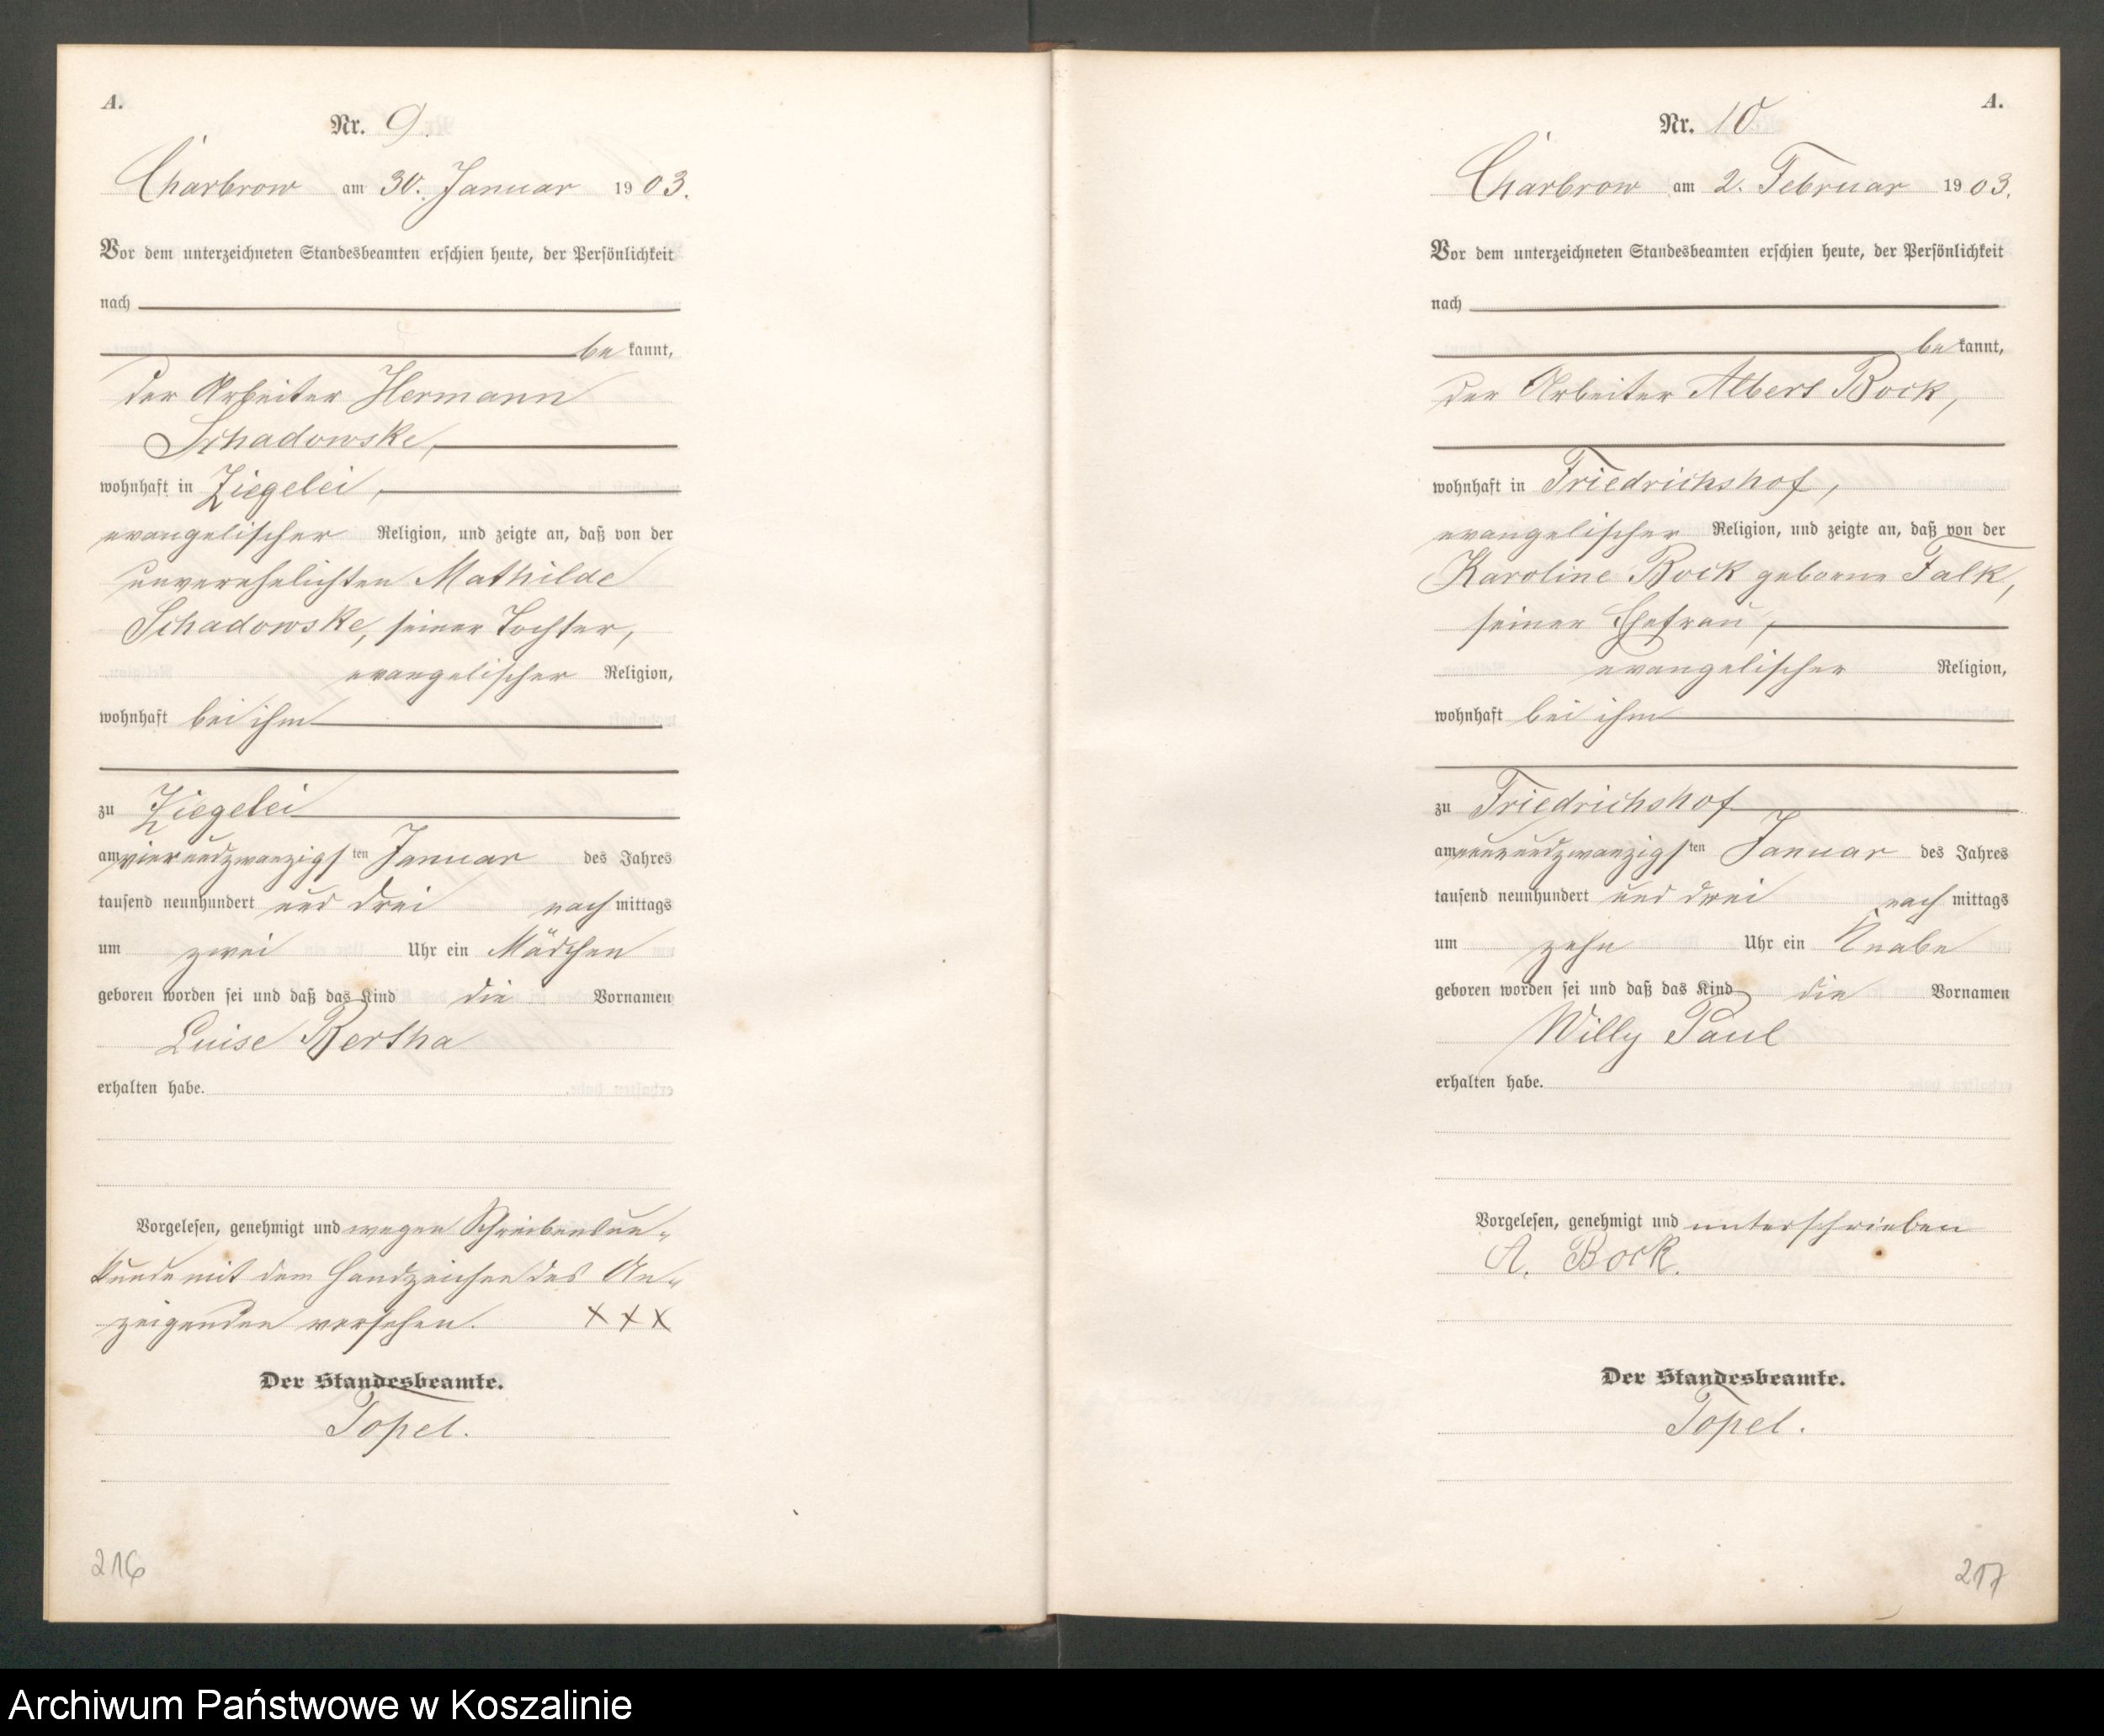 A.
Nr. 9.
Charbrow am 30. Januar 1903.
Vor dem unterzeichneten Standesbeamten erschien heute, der Persönlichkeit
nach
bekannt,
der Arbeiter Hermann
Schadowske,
wohnhaft in Ziegelei,
evangelischer Religion, und zeigte an, daß von der
unverehelichten Mathilde
Schadowske, seiner Tochter,
evangelischer Religion,
wohnhaft bei ihm
zu Ziegelei
am vierundzwanzigsten Januar des Jahres
tausend neunhundert und drei nachmittags
um zwei Uhr ein Mädchen
geboren worden sei und daß das Kind die Vornamen
Luise Bertha
erhalten habe.
Vorgelesen, genehmigt und wegen Schreibensun-
kunde mit dem Handzeichen des An-
zeigenden versehen. XXX
Der Standesbeamte.
Topel.
216
A.
Nr. 10
Charbrow am 2. Februar 1903.
Vor dem unterzeichneten Standesbeamten erschien heute, der Persönlichkeit
nach
bekannt,
der Arbeiter Albert Bock,
wohnhaft in Friedrichshof,
evangelischer Religion, und zeigte an, daß von der
Karoline Bock geborene Falk,
seiner Ehefrau,
evangelischer Religion,
wohnhaft bei ihm
zu Friedrichshof
am neunundzwanzigsten Januar des Jahres
tausend neunhundert und drei nachmittags
um zehn Uhr ein Knabe
geboren worden sei und daß das Kind die Vornamen
Willy Paul
erhalten habe.
Vorgelesen, genehmigt und unterschrieben
A. Bock.
Der Standesbeamte.
Topel.
217
Archiwum Państwowe w Koszalinie